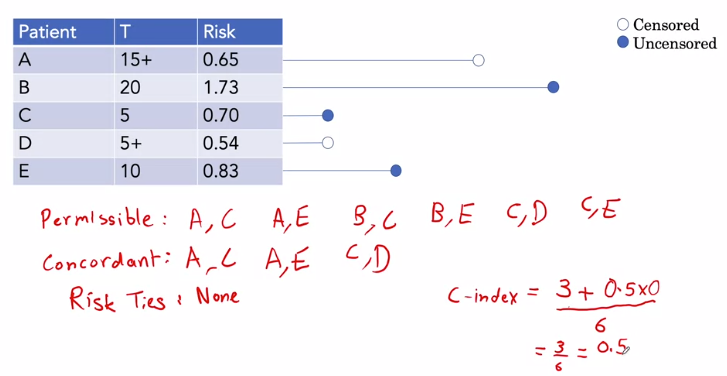 Patient T Risk
A 15+ 0.65
B 20 1.73
C 5 0.70
D 5+ 0.54
E 10 0.83
Censored
Uncensored
Permissible: A, C A, E B, C B, E C, D C, E
Concordant: A, C A, E C, D
Risk Ties: None
C-index = 3 + 0.5×0
6
= 3/6 = 0.5